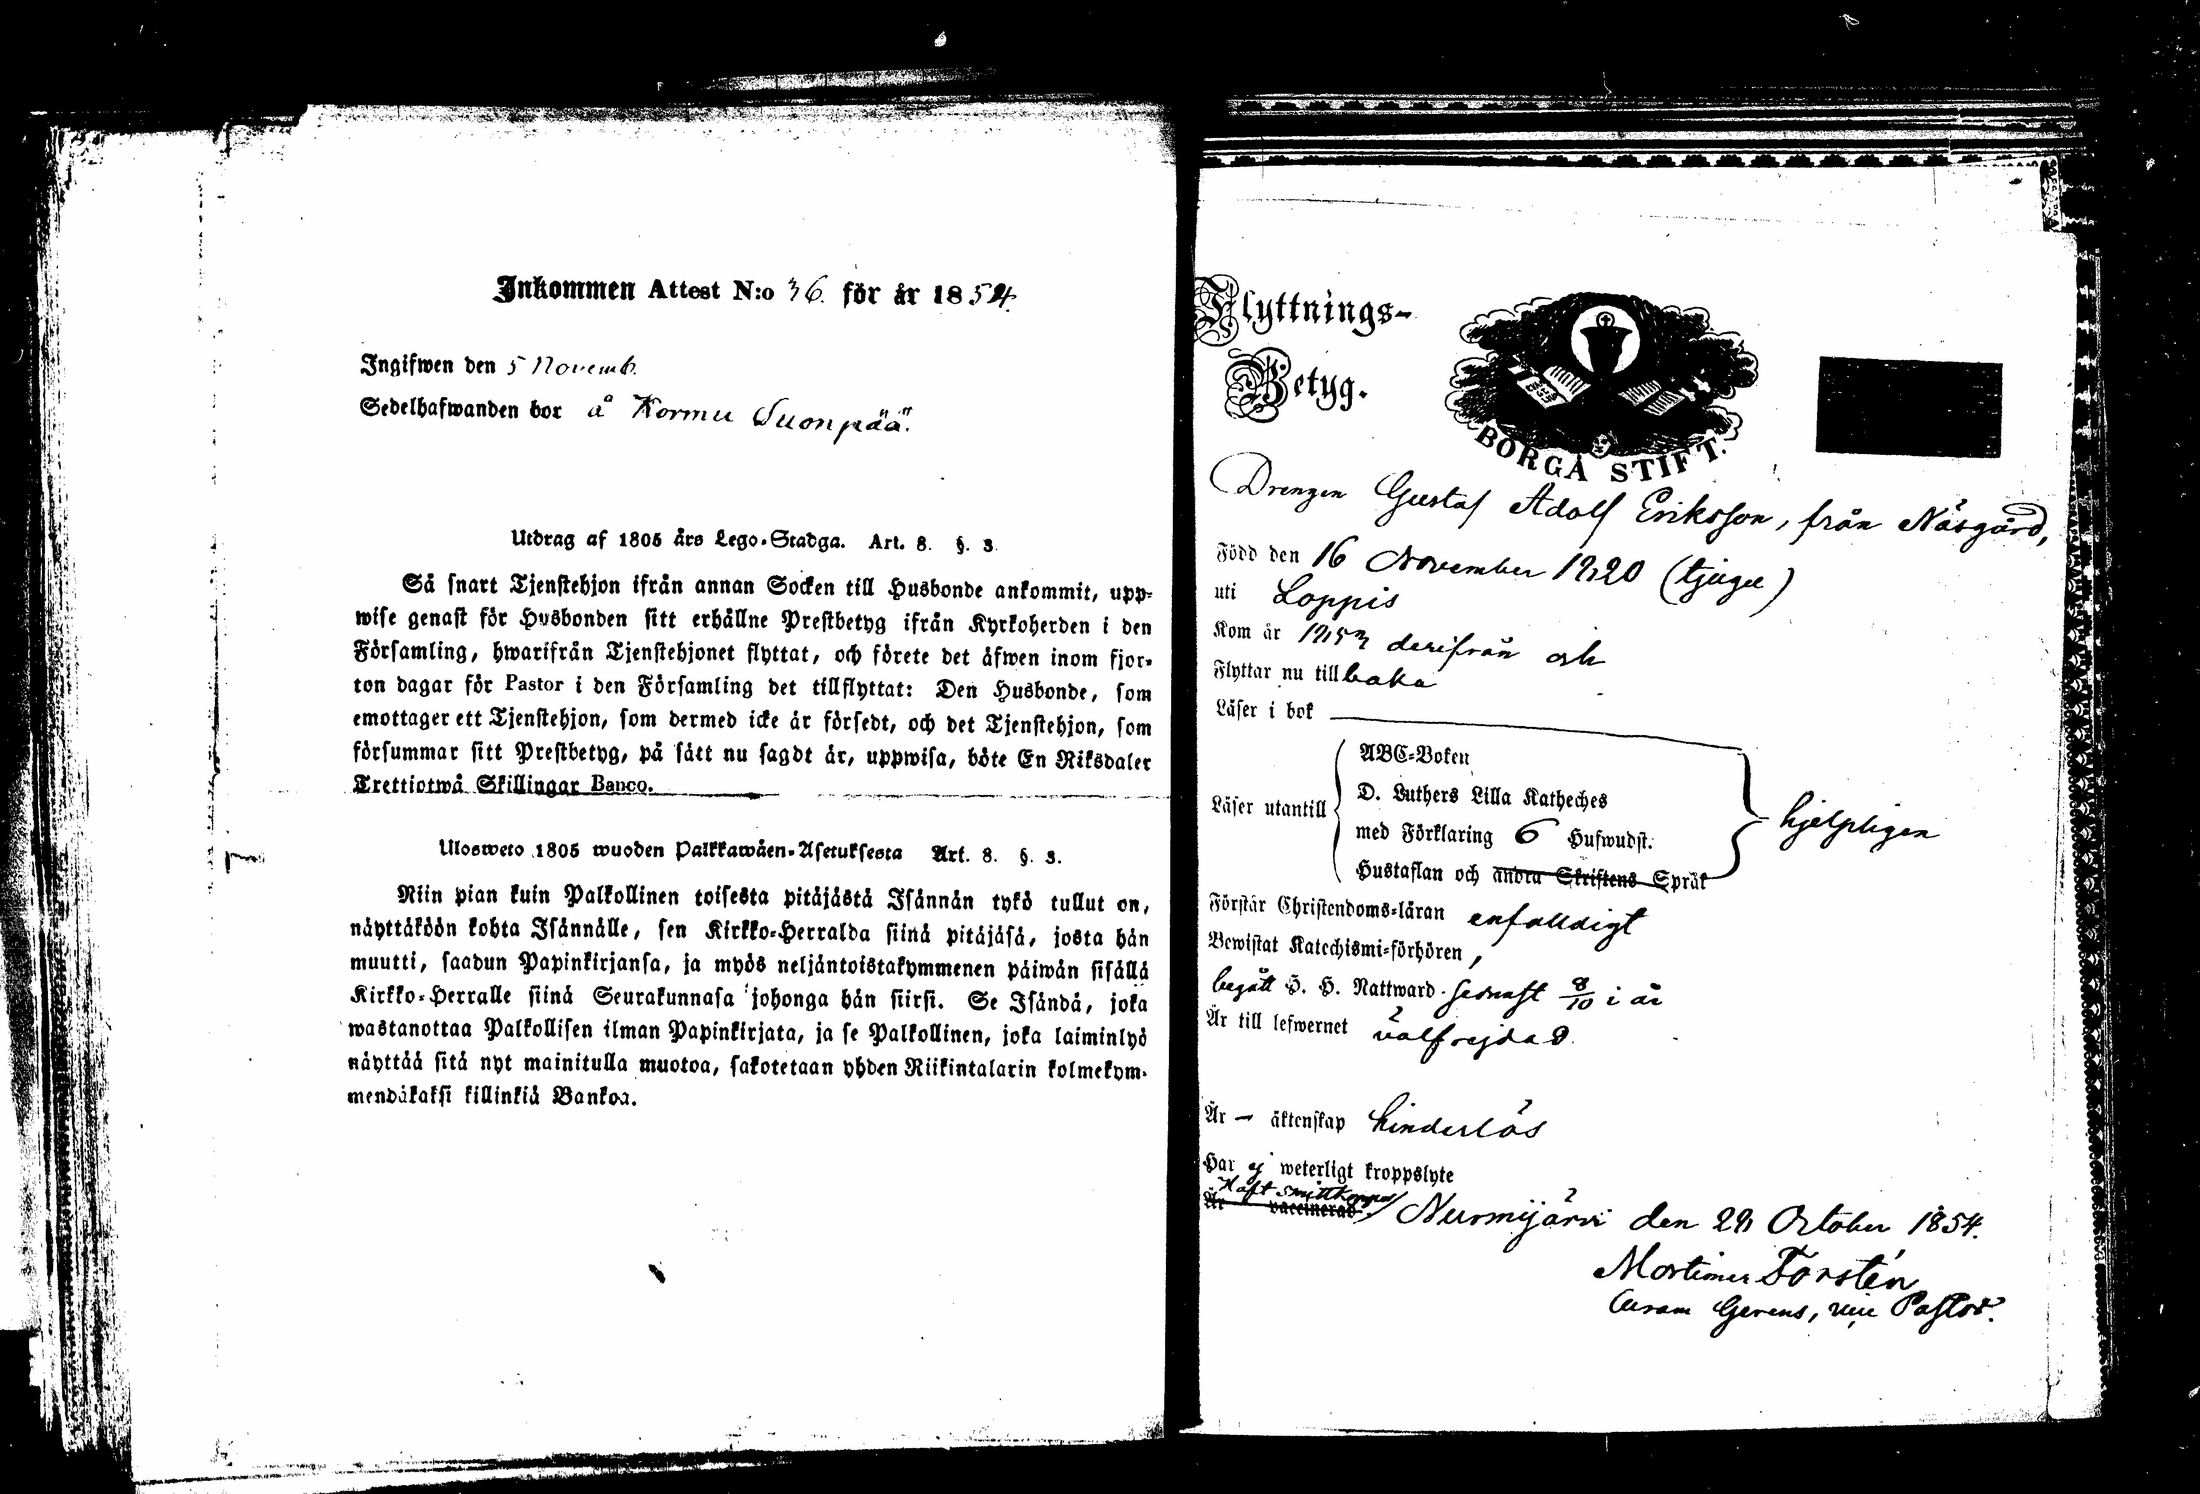 Inkommen Attest N:o 36. för år 1854.
Ingifwen den 5 Novemb.
Sedelhafwanden bor å Kormu Suonpää.
Utdrag af 1805 års Lego-Stadga. Art. 8. §. 3
Så snart Tjenstehjon ifrån annan Socken till Husbonde ankommit, upp-
wise genast för Husbonden sitt erhållne Prestbetyg ifrån Kyrkoherden i den
Församling, hwarifrån Tjenstehjonet flyttat, och förete det äfwen inom fjor-
ton dagar för Pastor i den Församling det tillflyttat: Den Husbonde, som
emottager ett Tjenstehjon, som dermed icke är försedt, och det Tjenstehjon, som
försummar sitt Prestbetyg, på sätt nu sagdt är, uppwisa, böte En Riksdaler
Trettiotwå Skillingar Banco.
Ulosweto 1805 wuoden Palkkawäen-Asetuksesta Art. 8. §. 3.
Niin pian kuin Palkollinen toisesta pitäjästä Isännän tykö tullut on,
näyttäköön kohta Isännälle, sen Kirkko-Herralda siinä pitäjäsä, josta hän
muutti, saadun Papinkirjansa, ja myös neljäntoistakymmenen päiwän sisällä
Kirkko-Herralle siinä Seurakunnasa johonga hän siirsi. Se Isändä, joka
wastanottaa Palkollisen ilman Papinkirjata, ja se Palkollinen, joka laiminlyö
näyttää sitä nyt mainitulla muotoa, sakotetaan yhden Riikintalarin kolmekym-
mendäkaksi killinkiä Bankoa.
Flyttnings-
Betyg.
BORGÅ STIFT.
Drengen Gustaf Adolf Eriksson, från Näsgård,
Född den 16 November 1820 (tjugu)
uti Loppis
Kom år 1853 derifrån och
Flyttar nu tillbaka
Läser i bok
Läser utantill
ABC-Boken
D. Luthers Lilla Katheches
med Förklaring 6 Hufwudst.
Hustaflan och andra Skriftens Språk
hjelpligen
Förstår Christendoms-läran enfalldigt
Bewistat Katechismi-förhören,
begått H. H. Nattward senast 8/10 i år
Är till lefwernet välfrejdad.
Är – äktenskap hinderlös
Har ej weterligt kroppslyte
Haft smittkoppor
Är vaccinerad
Nurmijärvi den 28 October 1854.
Mortimer Forstén
Curam Gerens, vice Pastor.